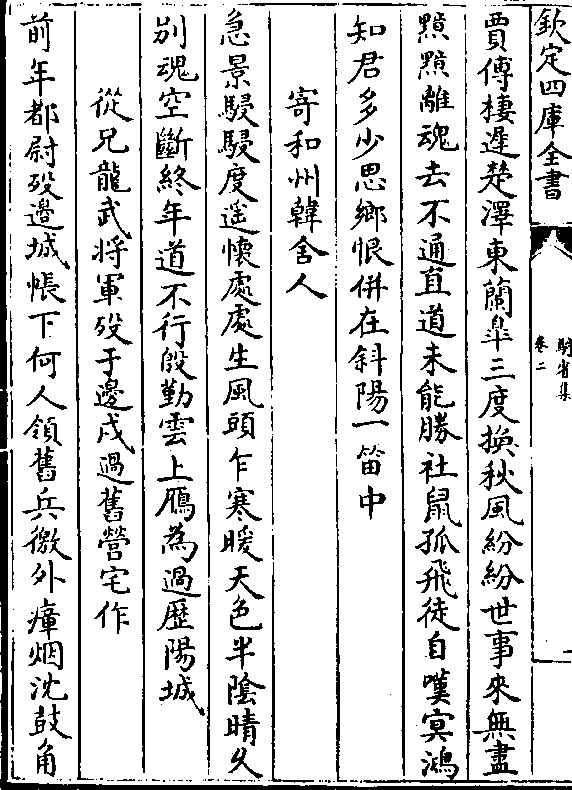 欽定四庫全書
騎省集
卷二
一
賈傅棲遲楚澤東蘭皐三度換秋風紛紛世事來無盡
黙黙離魂去不通直道未能勝社鼠孤飛徒自嘆㝠鴻
知君多少思鄉恨併在斜陽一笛中
寄和州韓舍人
急景駸駸度遥懷處處生風頭乍寒暖天色半陰晴久
别魂空斷終年道不行殷勤雲上鴈為過歴陽城
從兄龍武将軍殁于邊戍過舊營宅作
前年都尉殁邉城帳下何人領舊兵徼外瘴烟沈鼓角